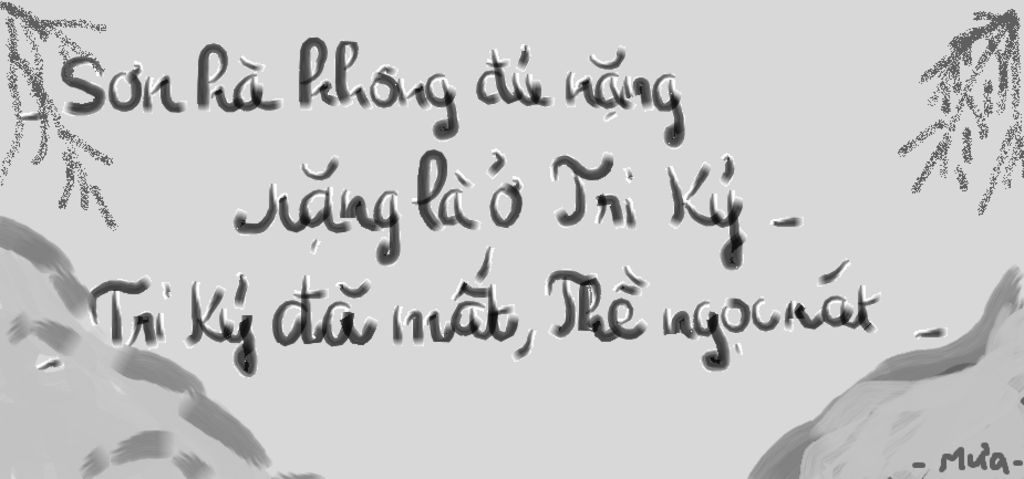 Sơn hà không đủ nặng
nặng là ở Tri Kỷ -
Tri Kỷ đã mất, Thề ngọc nát -
- Mưa -